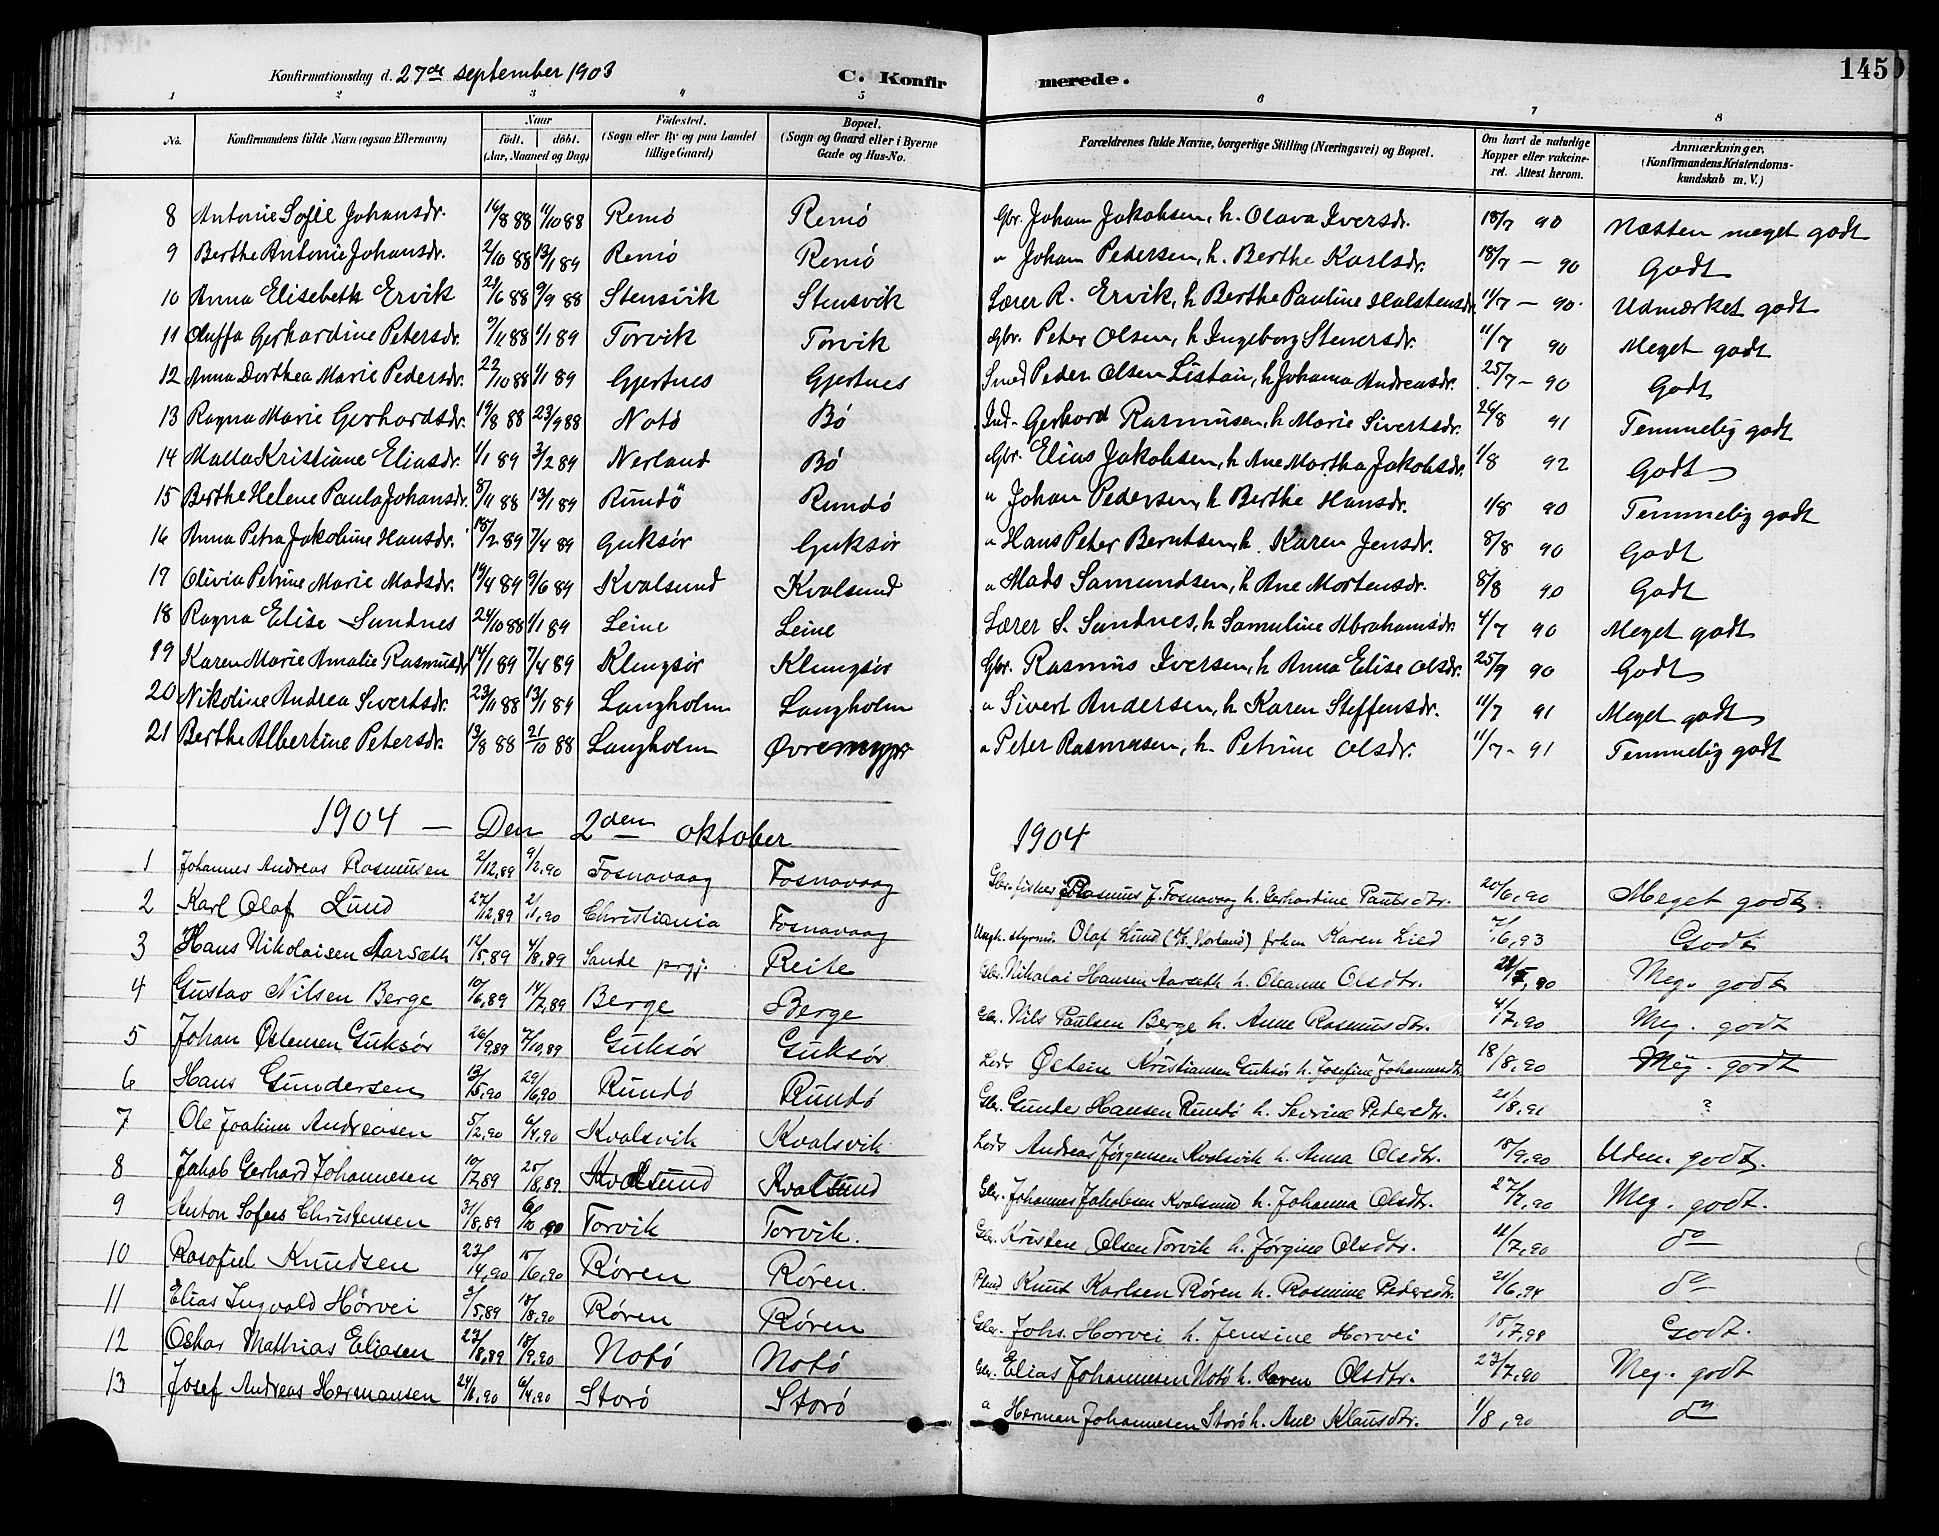 Konfirmationsdag d. 27de september 1903 C. Konfirmerede. 145
1 2 3 4 5 6 7 8
No. Konfirmandens fulde Navn (ogsaa Efternavn) Naar født. døbt. (Aar, Maaned og Dag) Fødested. (Sogn eller By og paa Landet tillige Gaard) Bopæl. (Sogn og Gaard eller i Byerne Gade og Hus-No. Forældrenes fulde Navne, borgerlige Stilling (Næringsvei) og Bopæl. Om havt de naturlige Kopper eller vakcineret. Attest herom. Anmærkninger. (Konfirmandens Kristendomskundskab m. V.)
8 Antonie Sofie Johansdr. 14/8 88 11/10 88 Remö Remö Gbr. Johan Jakobsen, h. Olava Iversdr. 18/7 90 Næsten meget godt
9 Berthe Antonie Johansdr. 2/10 88 13/1 89 Remö Remö " Johan Pedersen, h. Berthe Karlsdr. 18/7 - 90 Godt
10 Anna Elisebeth Ervik 29/6 88 9/9 88 Stensvik Stensvik Lærer R. Ervik, h Berthe Pauline Halstensdr. 11/7 - 90. Udmærket godt
11 Gerhardine Petersdr. 9/11 88 1/1 89 Torvik Torvik Gbr. Peter Olsen, h Ingeborg Stenersdr. 11/7 90 Meget godt
12 Anna Dorthea Marie Pedersdr. 22/10 88 1/1 89 Gjertnes Gjertnes Smed Peder Olsen Listau, h Johanna Andreasdr. 25/7 - 90 Godt
13 Ragna Marie Gerhardsdr. 19/8 88 23/9 88 Notö Bö Ind. Gerhard Rasmusen, h Marie Sivertsdr. 26/8 91 Temmelig godt
14 Malla Kristiane Eliasdr. 1/1 89 3/2 89 Nerland Bö Gbr. Elias Jakobsen, h Ane Martha Jakobsdr. 1/8 92 Godt
15 Berthe Helene Paula Johansdr. 8/11 88 13/1 89 Rundö Rundö " Johan Pedersen, h Berthe Hansdr. 1/8 90 Temmelig godt
16 Anna Petra Jakobine Hansdr. 18/2 89 7/4 89 Guksør Guksør " Hans Peter Berntsen, h. Karen Jensdr. 8/8 90 Godt
17 Olivia Petrine Marie Madsdr. 19/4 89 9/6 89 Kvalsund Kvalsund " Mads Samundsen, h Ane Mortensdr. 8/8 90 Godt
18 Ragna Elise Sundnes 24/10 88 1/1 89 Leine Leine Lærer S. Sundnes, h Samuline Abrahamsdr. 4/7 90 Meget godt
19 Karen Marie Amalie Rasmusdr 14/1 89 7/4 89 Klungsør Klungsør Gbr. Rasmus Iversen, h Anna Elise Olsdr. 25/9 90 Godt
20 Nikoline Andrea Sivertsdr. 23/11 88 13/1 89 Langholm Langholm " Sivert Andersen, h. Karen Steffensdr. 11/7 91 Meget godt
21 Berthe Albertine Petersdr. 13/8 88 21/10 88 Langholm Øvremyr " Peter Rasmusen, h. Petrine Olsdr. 11/7 - 91 Temmelig godt
1904 - Den 2den oktober 1904
1 Johannes Andreas Rasmusen 2/12,89 9/2,90 Fosnavaag Fosnavaag Gbr. fisker Rasmus J. Fosnavaag h. Gerhardine Paulsdtr. 20/6,90 Meget godt
2 Karl Olaf Lund 27/12,89 2/11,90 Christiania Fosnavaag Olaf Lund Karen Lied 7/6,93 Godt
3 Hans Nikolaisen Aarsæth 12/5,89 4/8,89 Sande prgj. Reite Gbr. Nikolai Hansen Aarseth h. Oleanne Olsdtr. Meg. godt
4 Gustav Nilsen Berge 10/6,89 14/7,89 Berge Berge Gbr. Nils Paulsen Berge h. Anne Rasmusdtr. 4/7,90 Meg. godt
5 Johan Østensen Guksør 26/9,89 7/10,89 Guksør Guksør Lods Østein Kristiansen Guksør h. Josefine Johannesdtr. 18/8,90 Meg. godt
6 Hans Gundersen 13/5,90 29/6,90 Rundö Rundö Gbr. Gunder Hansen Rundö h. Severine Pedersdtr. 21/8,91 ?
7 Ole Joakim Andreasen 5/2,90 6/4,90 Kvalsvik Kvalsvik Lods Andreas Jørgensen Kvalsvik h. Anna Olsdtr. 18/9,90 Udm. godt.
8 Jakob Gerhard Johannesen 10/7,89 25/8,89 Kvalsund Kvalsund Gbr. Johannes Jakobsen Kvalsund h. Johanna Olsdtr. 27/7,90 Meg. godt.
9 Anton Sofus Christensen 31/8,89 6/10,90 Torvik Torvik. Gbr. Kristen Olsen Torvik h. Jørgine Olsdtr. 11/7,90 do
10 Knudsen 23/4,90 15/6,90 Røren Røren. Knut Karlsen Røren h. Rasmine Pedersdtr. 21/6,94 do
11 Elias Ingvald Horvei 3/5,89 18/8,90 Røren Røren Gbr. Johs. Horvei h. Jensine Horvei 18/7,98 Godt.
12 Oskar Mathias Eliasen 23/8,89 18/9,90 Notö Notö Gbr. Elias Johannesen Notö h. Karen Olsdtr. 23/7,90 Meg. godt
13 Josef Andreas Hermansen 24/1,90 6/4,90 Storö Storö " Herman Johannesen Storö h. Ane Klausdtr. 1/8,90 do